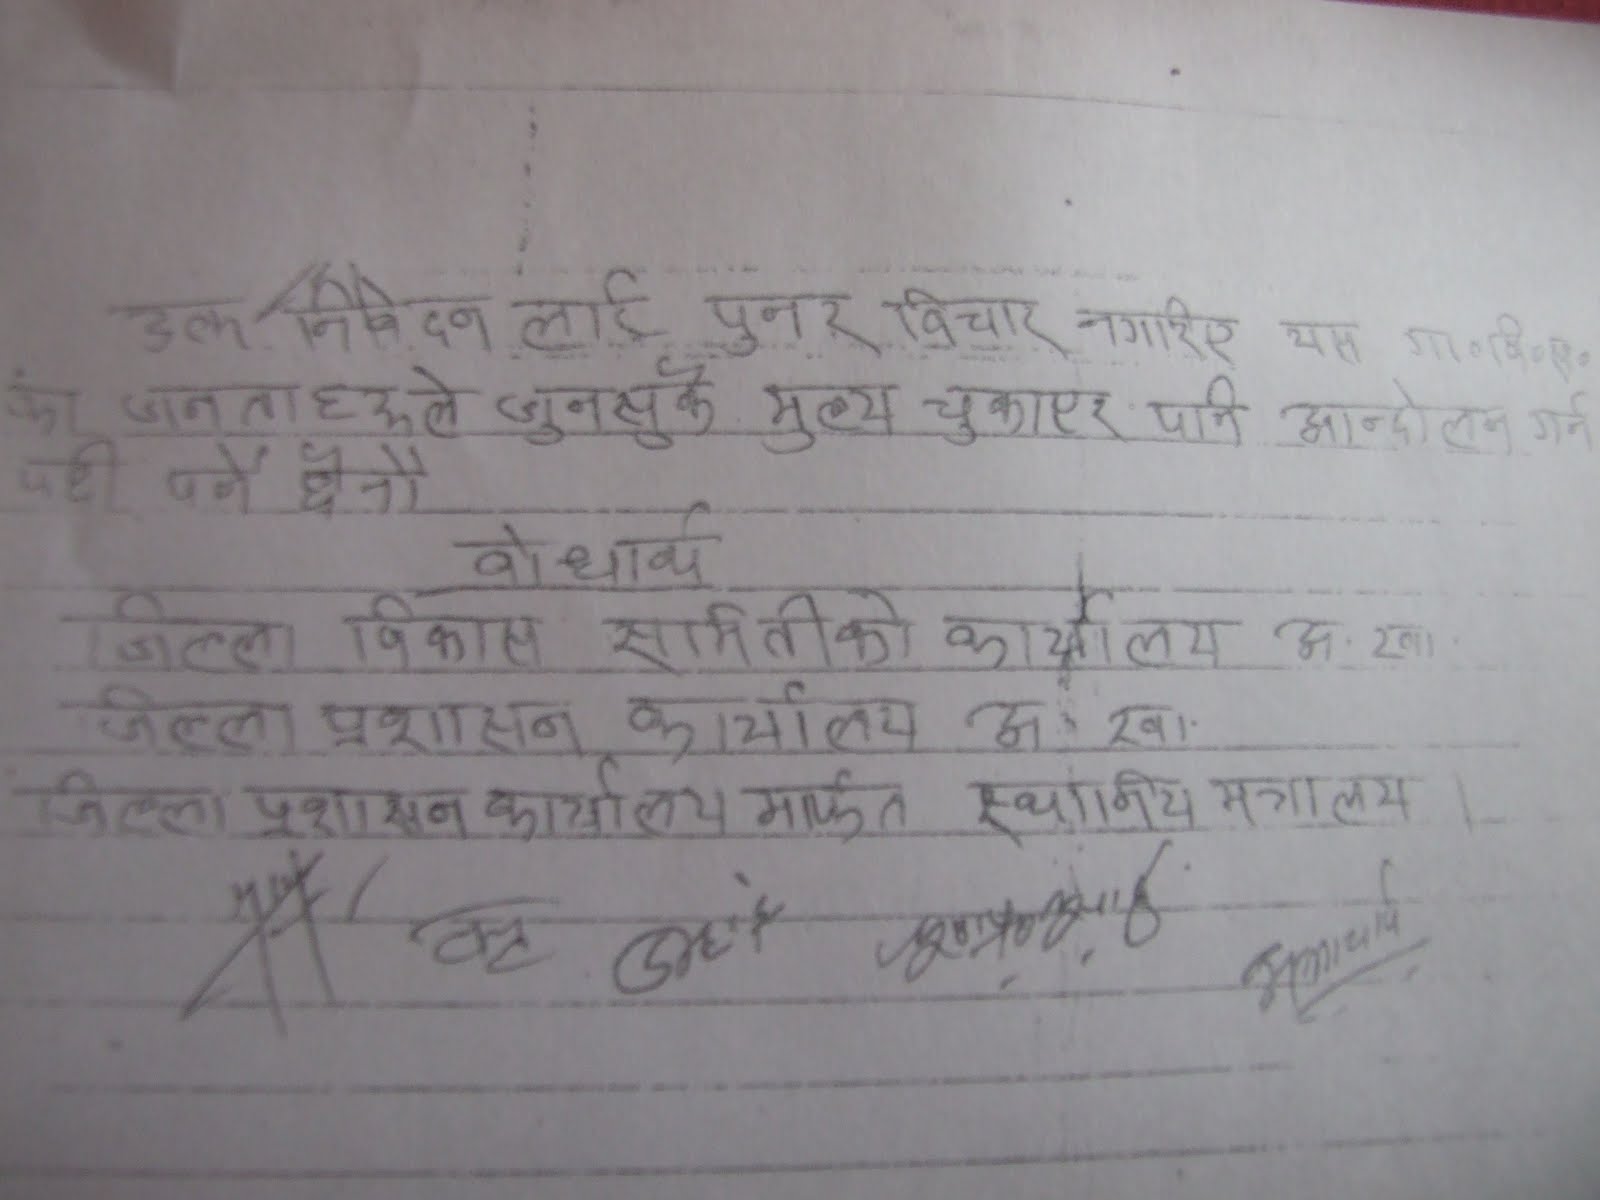 उक्त निवेदन लाई पुनर विचार नगारिए यस गा॰वि॰स॰
का जनताहरूले जुनसुकै मुल्य चुकाएर पनि आन्दोलन गर्न
पछी पर्ने छैनौ
वोधार्थ
जिल्ला विकास समितीको कार्यालय अ. खा.
जिल्ला प्रशासन कार्यालय अ. खा.
जिल्ला प्रशासन कार्यालय मार्फत स्थानिय मन्त्रालय ।